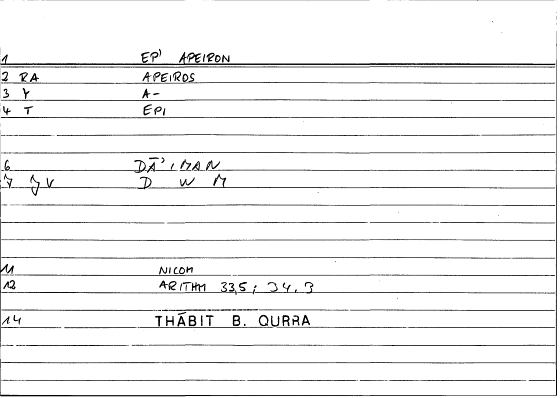 1 EP' APEIRON
2 RA APEIROS
3 Y A-
4 T EPI
6 DĀ'IMAN
7 JV D W M
11 NICOM
12 ARITHM 33,5; 34,3
14 THĀBIT B. QURRA